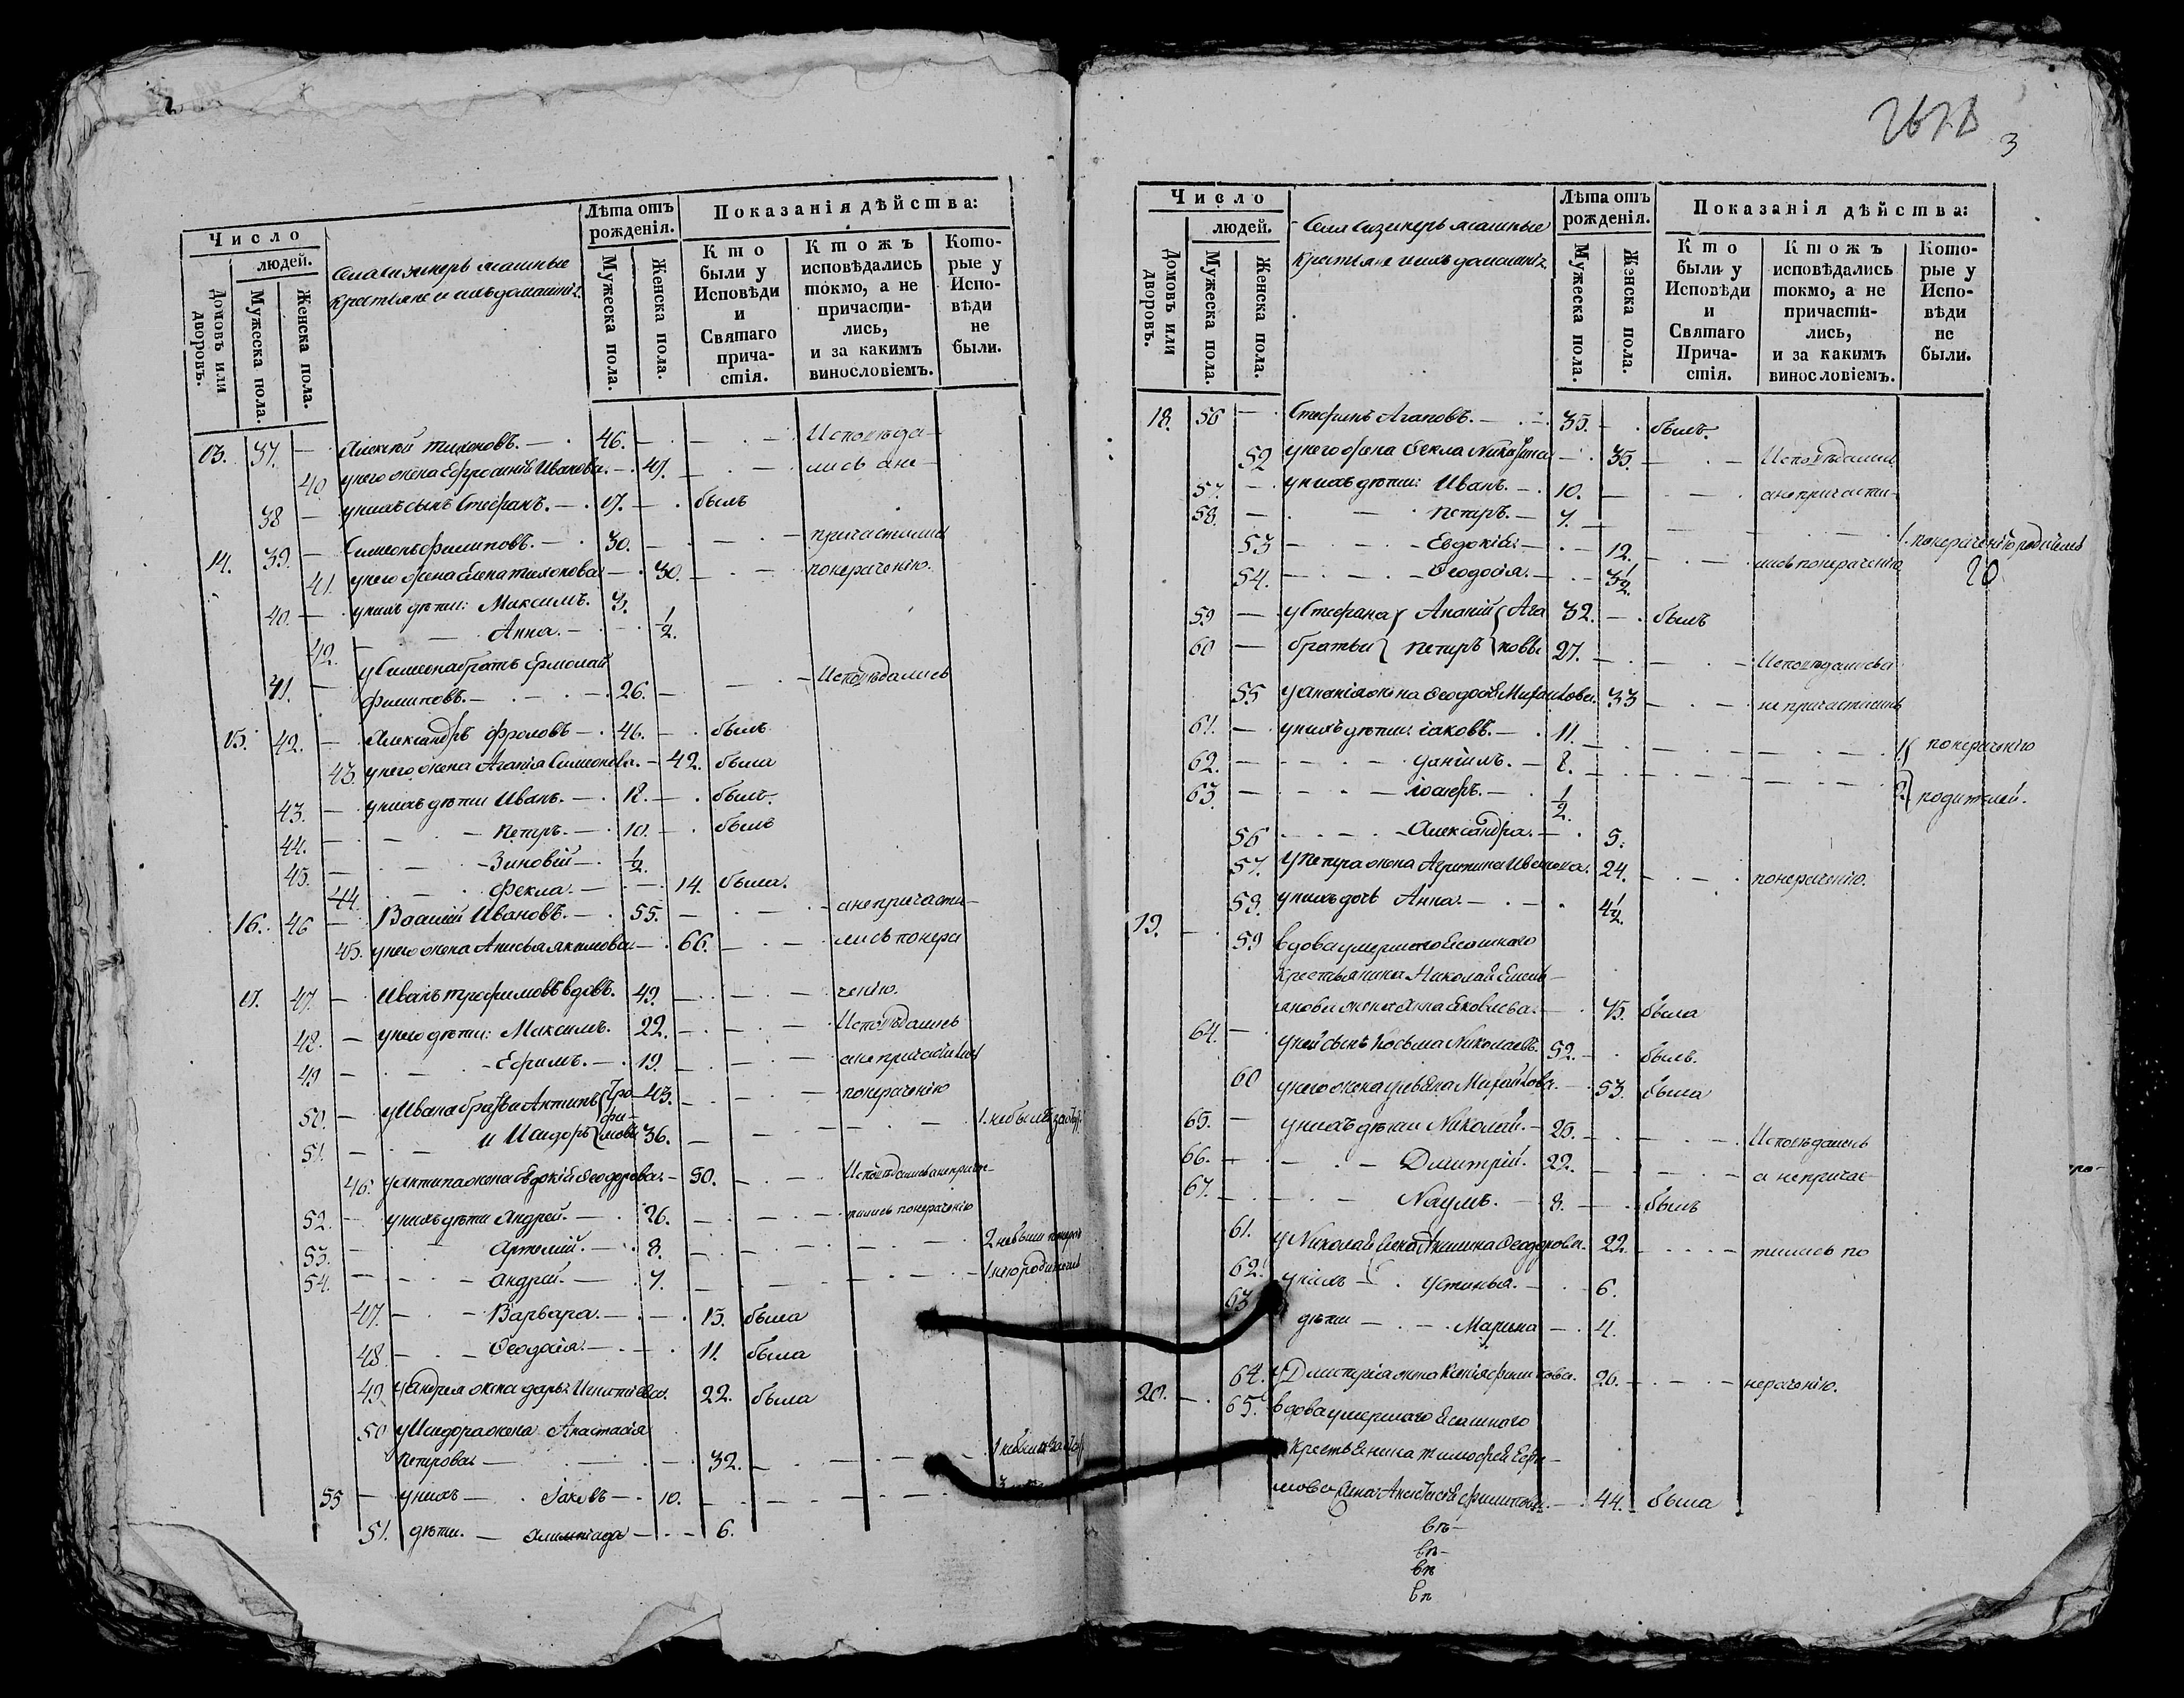 Число
людей.
Домовъ или дворовъ.
Мужеска пола.
Женска пола.
Крестьяне и ихъ домашнiе
Лѣта отъ рожденія.
Мужеска пола.
Женска пола.
Показанія дѣйства:
Кто были у Исповѣди и Святаго причастія.
Ктожъ исповѣдались токмо, а не причастились, и за какимъ винословіемъ.
Которые у Исповѣди не были.
13. 37. — Алексѣй Тихоновъ. — 46. — Исповѣда-
40 у него жена Ефросинiя Иванова. — 47. — лись а не
38 — у нихъ сынъ Стефанъ. — 17. — былъ
14. 39. — Симеонъ Филиповъ. — 30. — причастились
41. у него жена Елена Тихонова — 30. — понерачению.
40. — у нихъ дѣти: Максимъ. 3.
42. — Анна. — 1/2.
у Симеона братъ Ермолай
41. — Филиповъ. — 26. — Исповѣдались
15. 42. — Александръ Фроловъ — 46. — былъ
43. у него жена Агапiя Симеонова. — 42. была
43. — у нихъ дѣти Иванъ. — 12. — былъ.
44. — Петръ. — 10. — былъ
45. — Зиновiй — 1/2.
44. — Фекла. — 14. была.
16. 46 — Василiй Ивановъ. — 55. — а не причасти-
45. у него жена Анисья Якимова — 66. — лись понера
17. 47. — Иванъ Трофимовъ вдовъ. 49. — ченiю.
48. — у него дѣти: Максимъ. 22. — Исповѣдались
49 — Ефимъ. — 19. — а не причастились
50. — у Ивана братья Антипъ { Тро- 43. — понераченiю
51. — и Исидоръ { фимовы 36. — 1. не былъ за
46. у Антипа жена Евдокiя Феодорова. — 50. — Исповѣдались а не прича-
52. — у нихъ дѣти Андрей. — 26. — стились понераченiю
53. — Артемiй. — 8. — 2 небыли
54. — Андрей. — 7. —
47. — Варвара. — 15. была
48 — Феодосiя. — 11. была
49. у Андрея жена Дарья 22. была
50 у Исидора жена Анастасiя
Петрова — 32. —
55 — у нихъ — Iаковъ — 10. —
51. дѣти. — Олимпiада — 6.
3
Число
людей.
Домовъ или дворовъ.
Мужеска пола.
Женска пола.
Крестьяне и ихъ домашнiе
Лѣта отъ рожденія.
Мужеска пола.
Женска пола.
Показанія дѣйства:
Кто были у Исповѣди и Святаго Причастія.
Ктожъ исповѣдались токмо, а не причастились, и за какимъ винословіемъ.
Которые у Исповѣди не были.
18. 56 — Стефанъ Агаповъ. — 35. — былъ.
52 у него жена Фекла — 35. — Исповѣдались
57. — у нихъ дѣти: Иванъ. — 10. — а не причасти-
58. — Петръ. — 7. —
53 — Евдокiя. — 12. — 1. понераченiю родителей
54. — Феодосiя. — 3 1/2. лись понераченiю 20
59 — у Стефана { Ананiй { Ага 32. — былъ
60 — братья { Петръ { повы 27. — Исповѣдались а
55 у Ананiя жена Феодосiя Михайлова. 33 — не причастились
61. — у нихъ дѣти: Iаковъ. — 11. — понераченiю
62. — Данiилъ. — 8. —
63. — Iосифъ. — 1/2. родителей.
56 — Александра. — 5.
57. у Петра жена Агрипина Иванова. 24. — понераченiю.
58. у нихъ дочь Анна. — 4 1/2.
19. — 59 вдова умершаго ясашнаго
крестьянина Николая Емель-
янова жена Анна Яковлева. — 75. была
64. — у ней сынъ Косьма Николаевъ. 52. — былъ.
60 у него жена Улiяна Михайлова. — 53. была
65. — у нихъ дѣти Николай. — 25. — Исповѣдались
66. — Димитрiй. 22. — а не причас-
67. — Наумъ. — 8. — былъ
61. у Николая жена Акилина Феодорова. 22. — тились по
62. у нихъ — Устинья. — 6.
63 дѣти — Марина — 4.
64. у Димитрiя жена Ксенiя Филипова. 26. — нераченiю.
20. — 65. вдова умершаго ясашнаго
крестьянина Тимофея Ефи-
мова жена Анастасiя Филипова. — 44. была
вѣ-
вп-
вп
вп